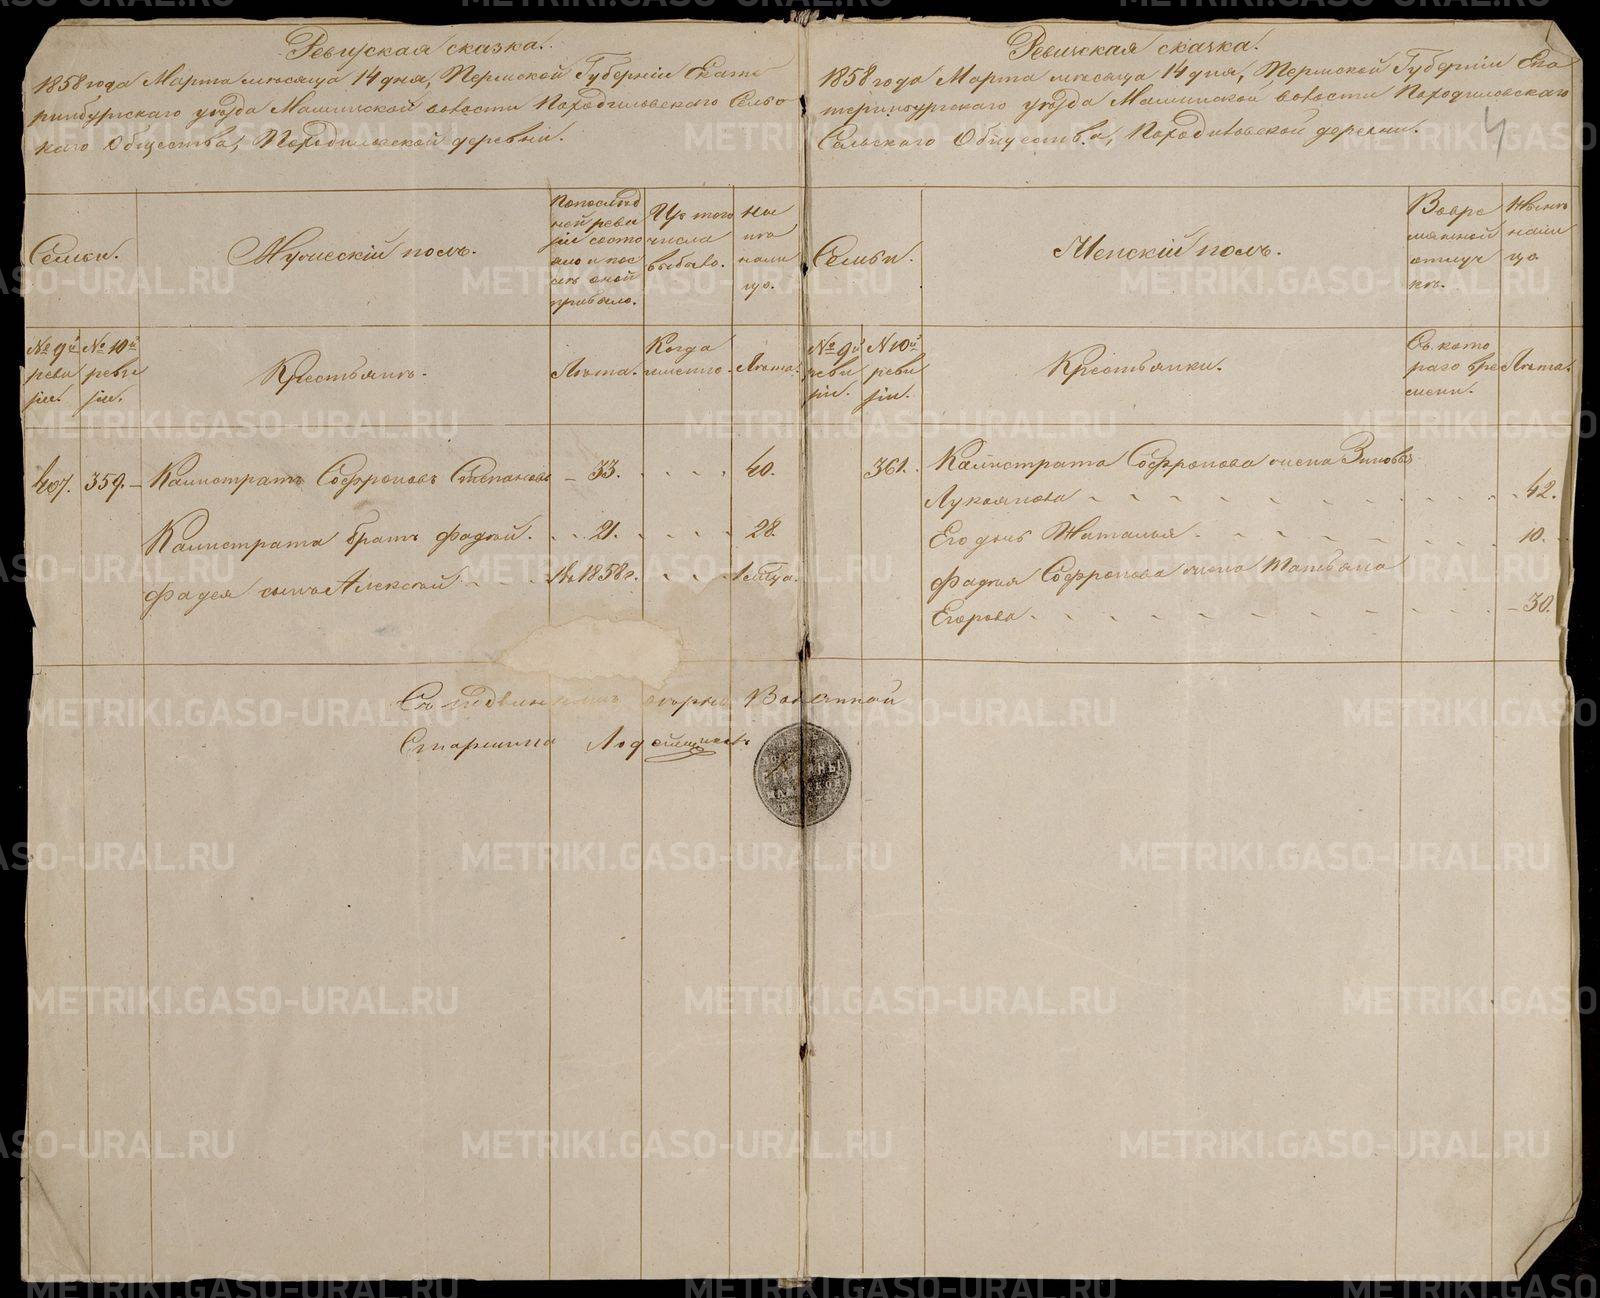 Ревизская сказка.
1858 года Марта месяца 14 дня, Пермской Губернiи Екате
ринбургскаго уезда Маминской волости Походиловскаго Сель
скаго Общества, Походиловской деревни.
Семьи.
Мужескiй полъ.
По послед
ней реви
зiи состо
яло и пос
ле оной
прибыло.
Изъ того
числа
выбыло.
Ныне
на
ли
цо.
№ 9й
реви
зiи.
№ 10й
реви
зiи.
Крестьяне.
Лета.
Когда
именно.
Лета.
407.
359.
Калистратъ Софроновъ Степановъ
33.
40.
Калистрата братъ Фадей.
21.
28.
Фадея сынъ Алексей
въ 1858 г.
1 м-ца.
Волостной
Старшина
Ревизская сказка.
1858 года Марта месяца 14 дня, Пермской Губернiи Ека
теринбургскаго уезда Маминской волости Походиловскаго
Сельскаго Общества, Походиловской деревни.
4
Семьи.
Женскiй полъ.
Во вре
менной
отлуч
ке.
Ныне
нали
цо.
№ 9й
реви
зiи.
№ 10й
реви
зiи.
Крестьянки.
Съ кото
раго вре
мени.
Лета.
361.
Калистрата Софронова жена Зиновья
Лукоянова
42.
Его дочь Наталья
10.
Фадея Софронова жена Татьяна
Егорова
30.
METRIKI.GASO-URAL.RU